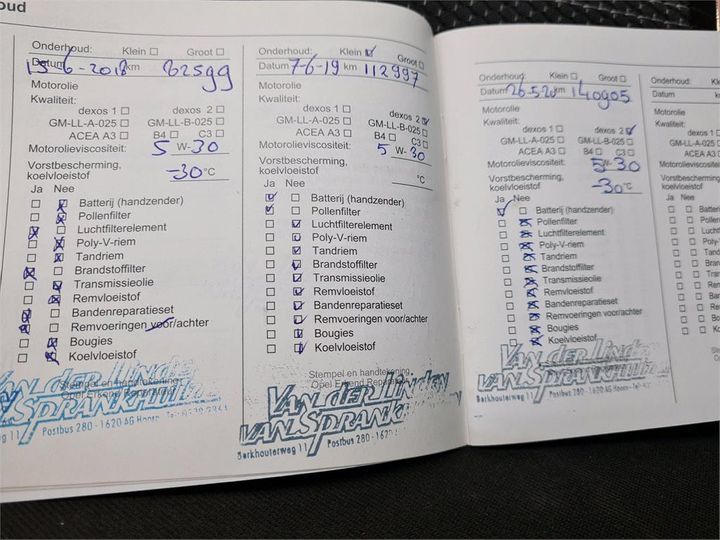 oud
Onderhoud: Klein □ Groot □
Datum 15-6-2018 km 82599
Motorolie
Kwaliteit:
dexos 1 □ dexos 2 □
GM-LL-A-025 □ GM-LL-B-025 □
ACEA A3 □ B4 □ C3 □
Motorolieviscositeit: 5 W- 30
Vorstbescherming,
koelvloeistof -30 °C
Ja Nee
Batterij (handzender)
Pollenfilter
Luchtfilterelement
Poly-V-riem
Tandriem
Brandstoffilter
Transmissieolie
Remvloeistof
Bandenreparatieset
Remvoeringen voor/achter
Bougies
Koelvloeistof
Stempel en handtekening
Opel Erkend
VAN DER LINDEN
VAN SPRANKHUIZEN
weg 11 Postbus 280 - 1620 AG Hoorn
Onderhoud: Klein ☑ Groot □
Datum 7-6-19 km 112997
Motorolie
Kwaliteit:
dexos 1 □ dexos 2 ☑
GM-LL-A-025 □ GM-LL-B-025 □
ACEA A3 □ B4 □ C3 □
Motorolieviscositeit: 5 W- 30
Vorstbescherming,
koelvloeistof °C
Ja Nee
Batterij (handzender)
Pollenfilter
Luchtfilterelement
Poly-V-riem
Tandriem
Brandstoffilter
Transmissieolie
Remvloeistof
Bandenreparatieset
Remvoeringen voor/achter
Bougies
Koelvloeistof
Stempel en handtekening
Opel Erkend Reparateur
VAN DER LINDEN
VAN SPRANK
Berkhouterweg 11 Postbus 280 - 1620
Onderhoud: Klein □ Groot □
Datum 26-5-20 km 140905
Motorolie
Kwaliteit:
dexos 1 □ dexos 2 ☑
GM-LL-A-025 □ GM-LL-B-025 □
ACEA A3 □ B4 □ C3 □
Motorolieviscositeit: 5 W- 30
Vorstbescherming,
koelvloeistof -30 °C
Ja Nee
Batterij (handzender)
Pollenfilter
Luchtfilterelement
Poly-V-riem
Tandriem
Brandstoffilter
Transmissieolie
Remvloeistof
Bandenreparatieset
Remvoeringen voor/achter
Bougies
Koelvloeistof
Stempel en handtekening
VAN DER LINDEN
VAN SPRANKHUIZEN
Berkhouterweg 11 Postbus 280 - 1620 AG Hoorn
Onderhoud: Kle
Datum
Motorolie
Kwaliteit:
GM-LL-A
ACEA
Motorolieviscosite
Vorstbescherming
koelvloeistof
Ja Nee
Batterij
Pollen
Lucht
Poly-
Tand
Bran
Tran
Rem
Ban
Re
Bo
Ko